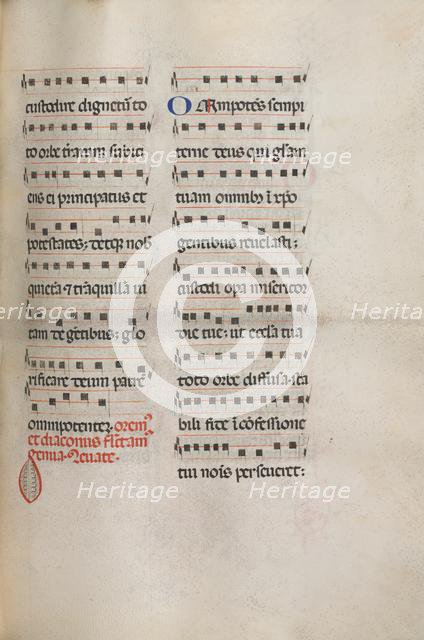 custodire dignetur to
to orbe terrarum subici
ens ei principatus et
potestates; detque nob
quietā & tranquillā ui
tam degentibus; glo
rificare deum patrē
omnipotentez. orem⁹
et diaconus flectam⁹
genua. Leuate.
Omnipotēs sempi
terne deus qui gl̄am
tuam omnibꝫ ī xp̄o
gentibus reuelasti;
custodi opa misericor
die tue; ut eccl̄a tua
toto orbe diffusa. sta
bili fide ī cōfessione
tui nōis perseueret: